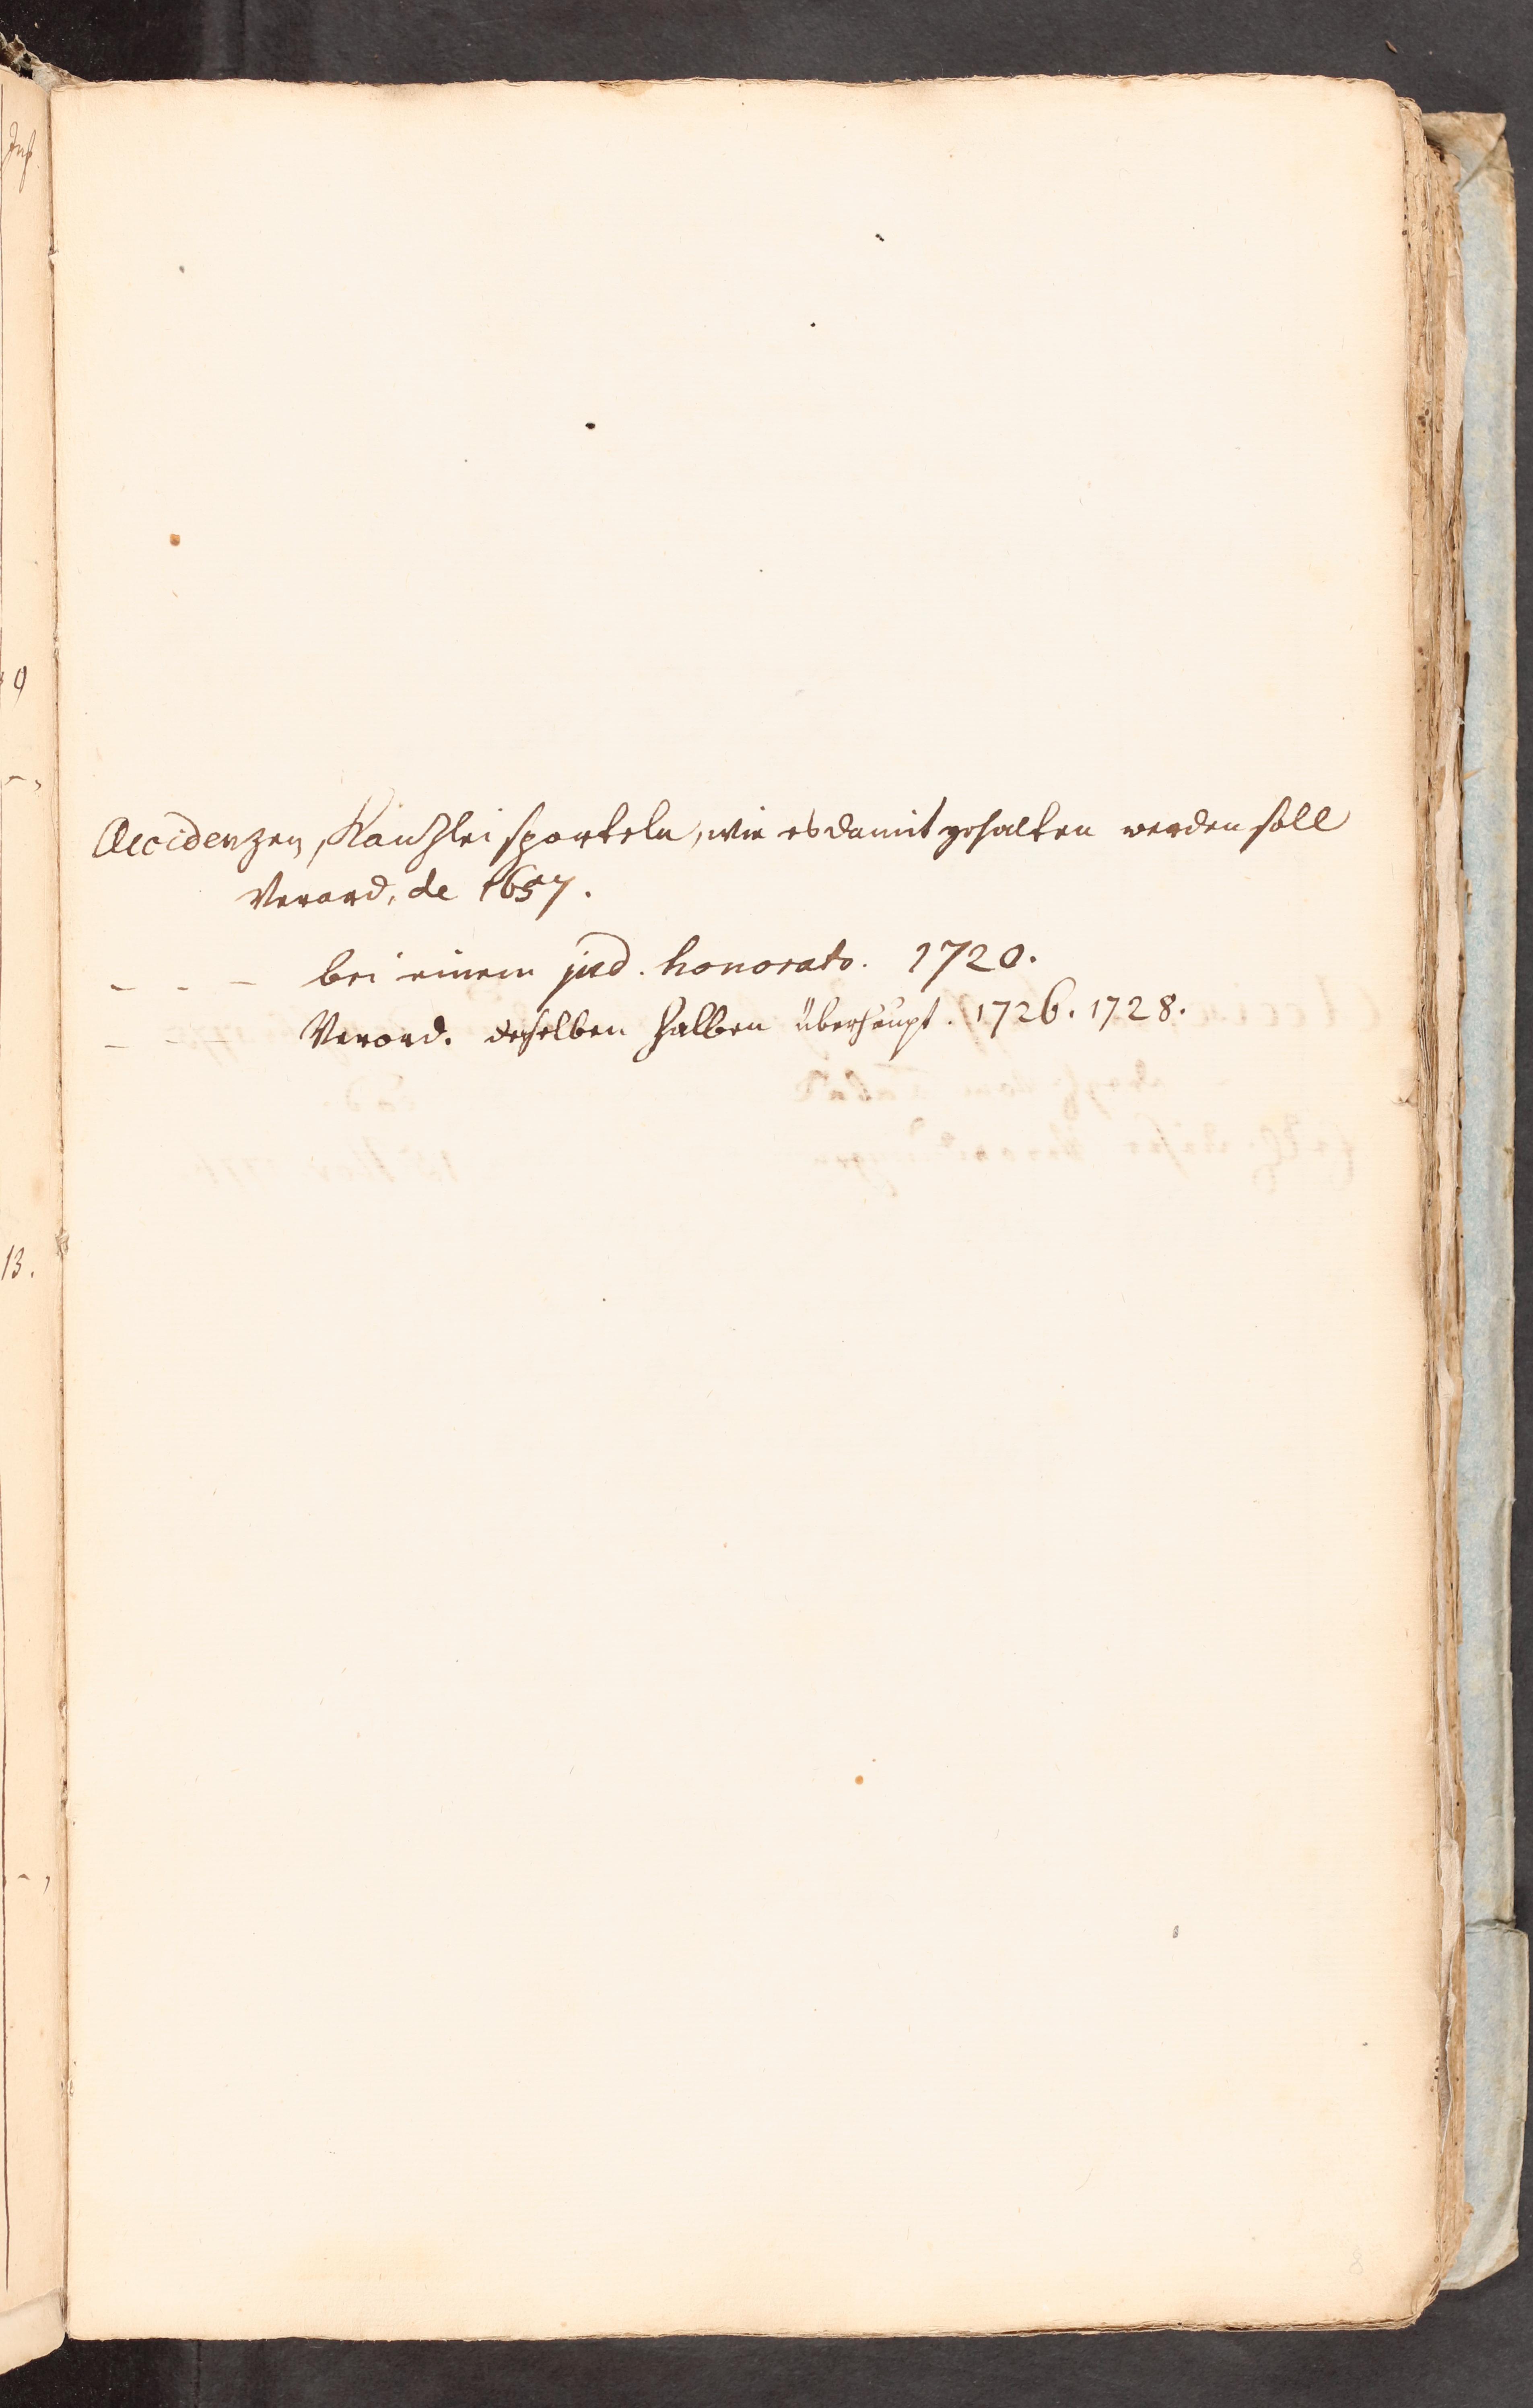 Accidenzen, Kanzlei sporteln, wie es damit gehalten werden soll
Verord. de 1657.
- - - bei einem jud. honorato. 1720.
- - - Verord. derselben halben überhaupt. 1726. 1728.
9
13.
8